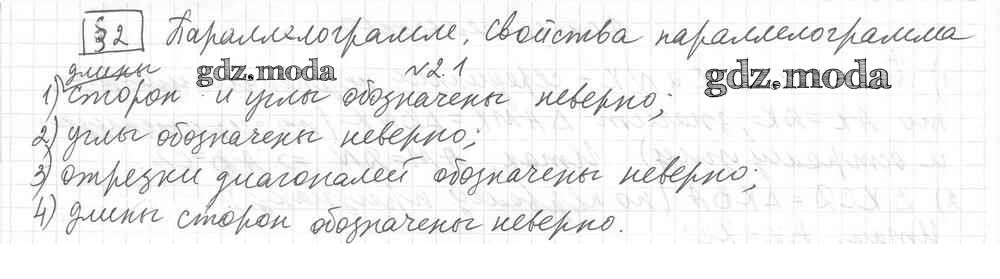 §2 Параллелограмм, свойства параллелограмма
gdz.moda №2.1 gdz.moda
1) длины сторон и углы обозначены неверно;
2) углы обозначены неверно;
3) отрезки диагоналей обозначены неверно;
4) длины сторон обозначены неверно.